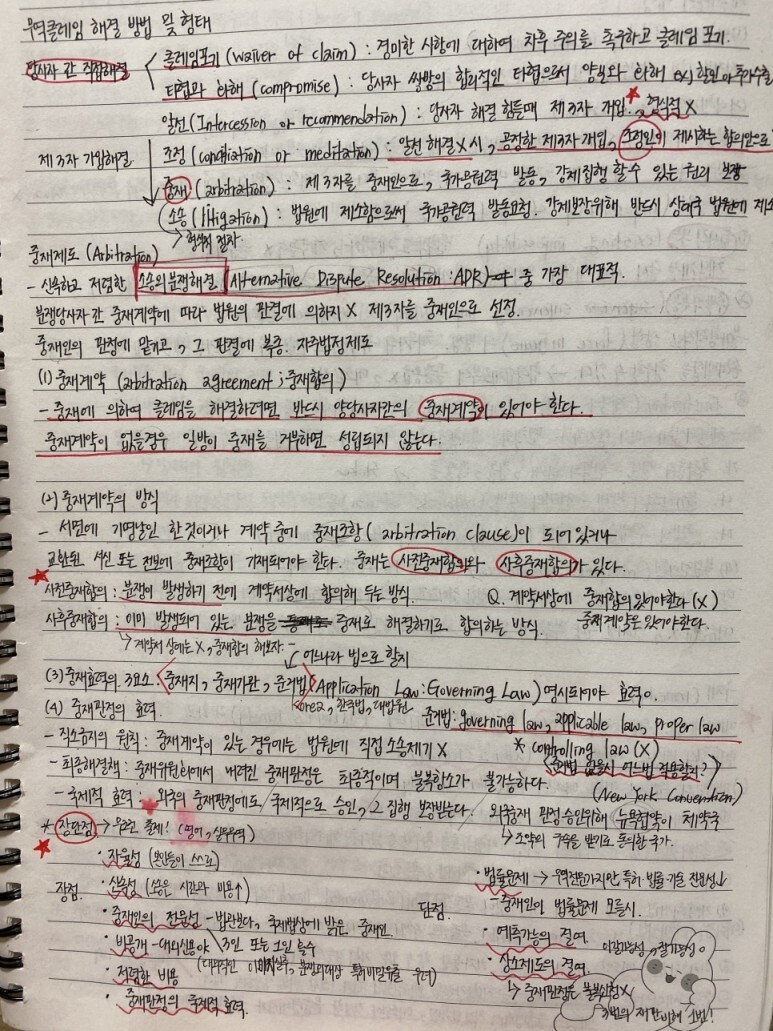 무역클레임 해결 방법 및 형태
당사자 간 직접해결
클레임포기 (waiver of claim) : 경미한 사항에 대하여 차후 주의를 촉구하고 클레임 포기.
타협과 화해 (compromise) : 당사자 쌍방의 합리적인 타협으로서 양보와 화해 ex) 할인 or 추가수출
제 3자 개입해결
알선 (Intercession or recommendation) : 당사자 해결 힘들때 제 3자 개입. 형식적 X
조정 (conciliation or meditation) : 알선 해결 X 시, 공정한 제3자 개입, 조정인이 제시하는 합의안으로
중재 (arbitration) : 제 3자를 중재인으로, 국가공권력 발동, 강제집행 할 수 있는 권리 보장
소송 (litigation) : 법원에 제소함으로써 국가공권력 발동요청. 강제보장위해 반드시 상대국 법원에 제소
↳ 형식적 절차
중재제도 (Arbitration)
- 신속하고 저렴한 소송외분쟁해결 (Alternative Dispute Resolution : ADR) 중 가장 대표적.
분쟁당사자 간 중재계약에 따라 법원의 판결에 의하지 X 제3자를 중재인으로 선정.
중재인의 판정에 맡기고, 그 판결에 복종. 자주법정제도
(1) 중재계약 (arbitration agreement ; 중재합의)
- 중재에 의하여 클레임을 해결하려면 반드시 양당사자간의 중재계약이 있어야 한다.
중재계약이 없을경우 일방이 중재를 거부하면 성립되지 않는다.
(2) 중재계약의 방식
- 서면에 기명날인 한 것이거나 계약 중에 중재조항 (arbitration clause)이 되어있거나
교환된 서신 또는 전보에 중재조항이 기재되어야 한다. 중재는 사전중재합의와 사후중재합의가 있다.
사전중재합의 : 분쟁이 발생하기 전에 계약서상에 합의해 두는 방식. Q. 계약서상에 중재합의 있어야한다 (X)
사후중재합의 : 이미 발생되어 있는 분쟁을 중재로 해결하기로 합의하는 방식. 중재계약은 있어야한다.
↳ 계약서 상에는 X, 중재합의 해보자~
↙ 어느나라 법으로 할지
(3) 중재효력의 3요소 <중재지, 중재기관, 준거법> (Application Law : Governing Law) 명시되어야 효력 O.
Korea, 한국법, 대법원
(4) 중재판정의 효력. 준거법 : governing law, applicable law, proper law
- 직소금지의 원칙 : 중재계약이 있는 경우에는 법원에 직접 소송제기 X * controlling law (X)
<준거법 없을시 어느법 적용할지?>
- 최종해결책 : 중재위원회에서 내려진 중재판정은 최종적이며 불복항소가 불가능하다.
(New York Convention)
- 국제적 효력 : 외국의 중재판정에도 국제적으로 승인, 그 집행 보장받는다. 외국중재 판정승인위해 뉴욕협약이 체약국
↳ 조약의 구속을 받기로 동의한 국가.
* 장단점 → 무조건 출제! (영어, 실무무역)
장점.
· 자율성 (본인들이 스스로)
· 신속성 (소송은 시간과 비용↑)
· 중재인의 전문성 - 법관보다, 국제법상에 밝은 중재인.
↘ 3인 또는 1인 홀수
· 비공개 - 대외신용 야
· 저렴한 비용
· 중재판정의 국제적 효력.
단점.
· 법률문제 → 무역전문가지만, 특허 법률·기술 전문성↓
- 중재인이 법률문제 모를시.
· 예측가능의 결여.
· 상소제도의 결여.
↳ 중재판정은 불복신청 X
3번의 재판 비해 1번!